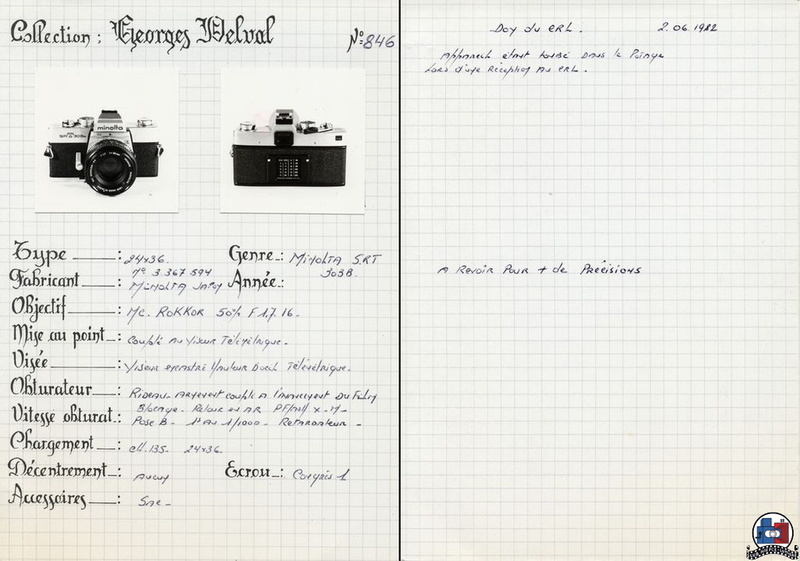 Collection : Georges Delval
Nº 846
minolta
Type : 24x36.
Genre : MINOLTA SRT
303B.
Nº 3.367 594
Fabricant : MINOLTA
Année :
Objectif : MC. ROKKOR 50 F 1,7. 16.
Mise au point : Couplé au Viseur Télémétrique.
Visée : Viseur Télémétrique.
Obturateur : Rideau couplé a l'avancement du
Blocage - Retour en AR
Vitesse obturat. : Pose B - 1" au 1/1000 - Retardateur -
Chargement : 135 - 24x36.
Décentrement : Aucun
Ecrou : Congrès 1
Accessoires : Sac -
Don du CRL. 2.06.1982
Appareil étant tombé dans la
Lors d'une Réception au CRL.
A Revoir Pour + de Précisions